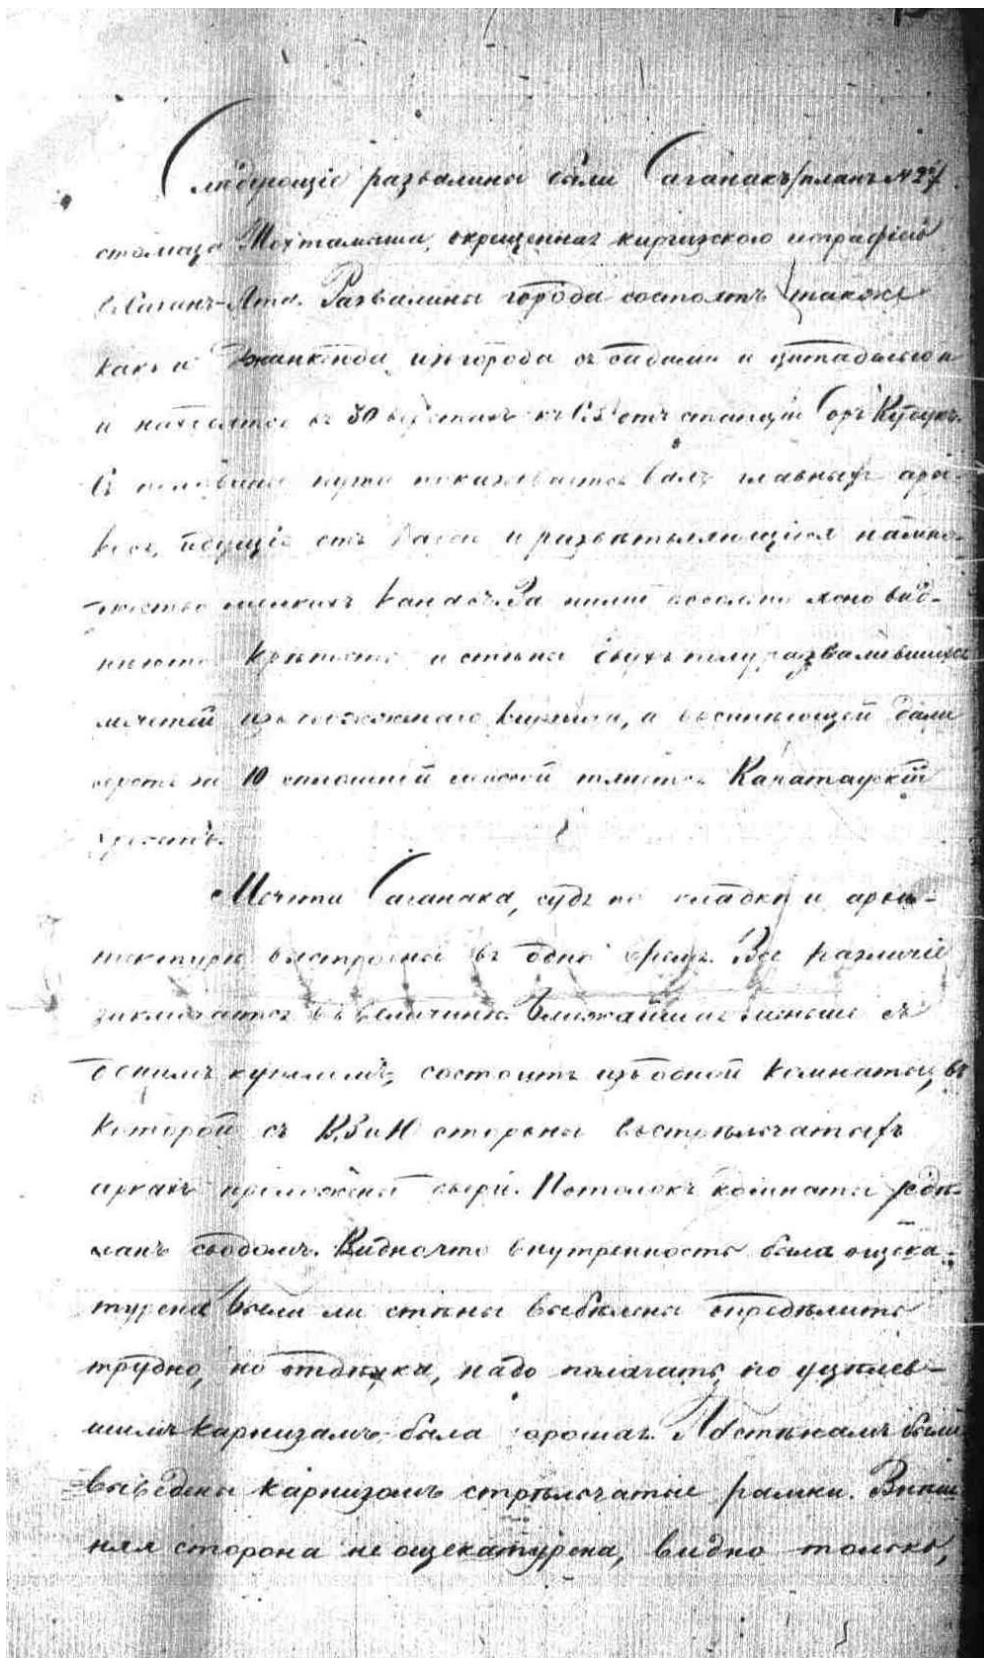 Слѣдующіе развалины были Саганакъ /планъ № 2й/
столица Тохтамыша, окрещенная киргизского географіею
въ Саганъ-Ата. Развалины города состоятъ также
какъ и Джанкенда изъ города съ садами и цитаделью
и находятся въ 30 верстахъ къ СВ отъ станціи Соръ Кудукъ.
Съ половины пути показывается валъ главныхъ ары-
ковъ, идущіе отъ и развѣтвляющіеся на мно-
жество мелкихъ канавъ. За ними довольно ясно вид-
нѣются крѣпость и стѣны двухъ полуразвалившихся
мечетей изъ жженаго кирпича, а въ синѣющей дали
верстъ за 10 сплошной массой тянется Каратаускій
хребетъ.
Мечети Саганака, судя по кладкѣ и архи-
тектурѣ выстроены въ одно время. Все различіе
заключается въ величинѣ. Ближайшая меньше съ
однимъ куполомъ, состоитъ изъ одной комнаты, въ
которой съ В, З и Ю стороны въ стрѣльчатыхъ
аркахъ продѣланы двери. Потолокъ комнаты сдѣ-
ланъ сводомъ. Видно что внутренность была ощека-
турена были ли стѣны выбѣлены опредѣлить
трудно, но отдѣлка, надо полагать, по уцѣлѣв-
шимъ карнизамъ была хорошая. По стѣнамъ были
выведены карнизомъ стрѣльчатые рамки. Внѣш-
няя сторона не ощекатурена, видно только,